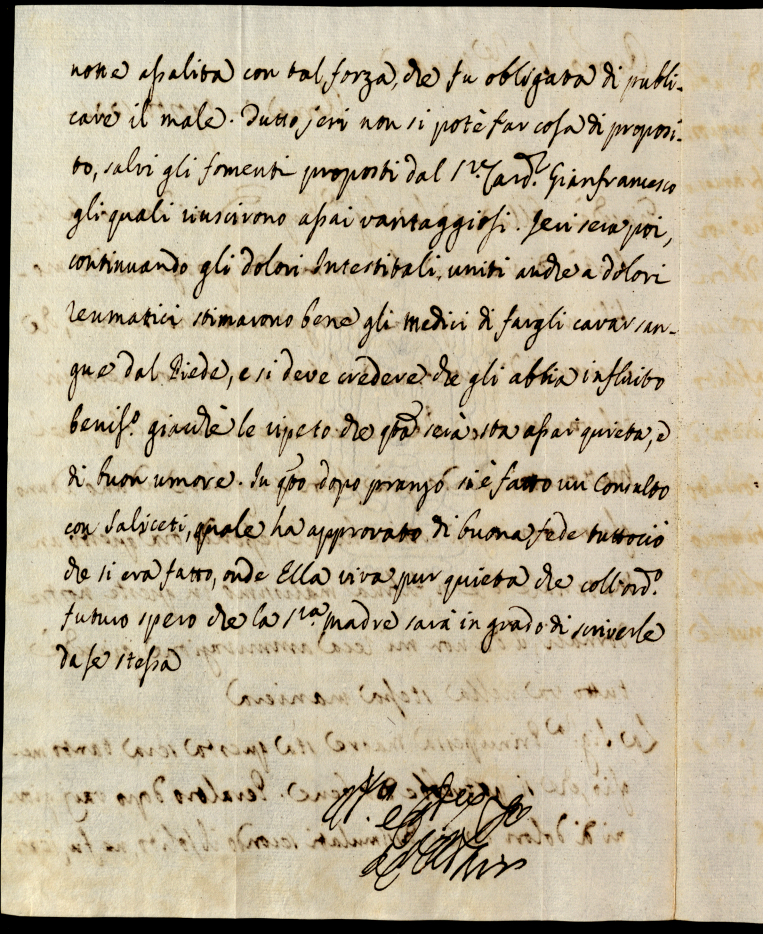 notte assalita con tal forza, che fu obligata di publi-
care il male. Tutto jeri non si potè far cosa di proposi-
to, salvi gli fomenti proposti dal Sr. Card.l Gianfrancesco
gli quali riuscirono assai vantaggiosi. Jeri sera poi,
continuando gli dolori Intestinali, uniti anche a dolori
reumatici stimarono bene gli medici di fargli cavar san-
gue dal Piede, e si deve credere che gli abbia influito
beniss.o giacchè le ripeto che qta sera sta assai quieta, e
di buon umore. In qto dopo pranzo si è fatto un Consulto
con Saliceti, quale ha approvato di buona fede tuttociò
che si era fatto, onde Ella viva pur quieta che coll'ord.o
futuro spero che la Sra madre sarà in grado di scriverle
da se stessa